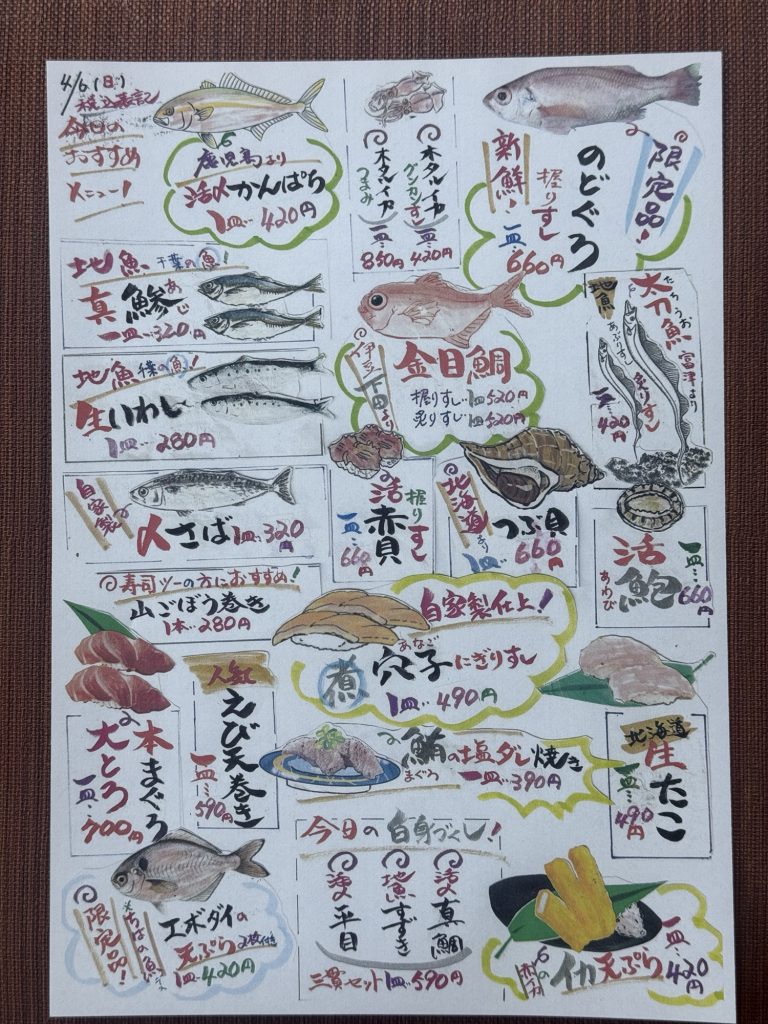 4/6(日)
税込表記
今日の
おすすめ
メニュー!
鹿児島より
活〆かんぱち
1皿…420円
ホタルイカ
グンカンすし
一皿…420円
ホタルイカ
つまみ
850円
限定品!
のどぐろ
握りすし
新鮮!
一皿…660円
地魚 千葉の魚!
真鯵
あじ
一皿…320円
地魚 千葉の魚!
生いわし
1皿…280円
伊豆下田より
金目鯛
握りすし…1皿520円
炙りすし…1皿520円
地魚
太刀魚
たちうお
富津より
炙りすし
あぶりすし
一皿…420円
自家製
〆さば 1皿…320円
活赤貝
握りすし
一皿…660円
北海道より
つぶ貝
1皿…660円
活鮑
あわび
一皿…660円
寿司ツーの方におすすめ!
山ごぼう巻き
1本…280円
自家製仕上!
煮穴子にぎりすし
あなご
1皿…490円
本まぐろ
大とろ
一皿…700円
人気
えび天巻き
一皿…590円
鮪の塩ダレ焼き
まぐろ
一皿…390円
北海道
生たこ
一皿…490円
限定品!
エボダイの
天ぷら 2枚付き
1皿…420円
今日の白身づくし!
活〆真鯛
地魚すずき
活〆平目
三貫セット 1皿…590円
イカ天ぷら
一皿…420円